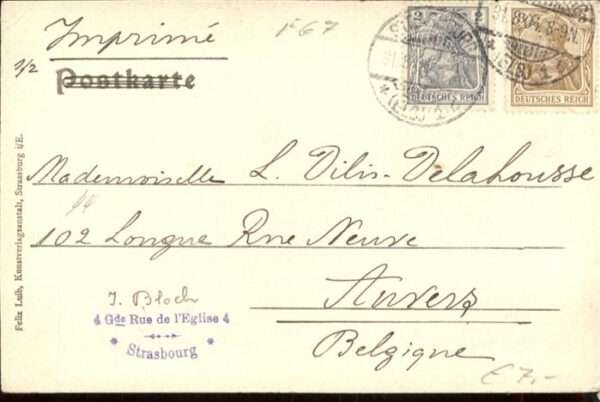 Imprimé
F 67
1/2
Postkarte
2 2
DEUTSCHES REICH
3
DEUTSCHES REICH
Mademoiselle L. Dilis-Delahousse
102 Longue Rue Neuve
Anvers
Belgique
J. Bloch
4 Gde Rue de l'Eglise 4
* Strasbourg *
Felix Luib, Kunstverlagsanstalt, Strassburg i/E.
€ 7.-